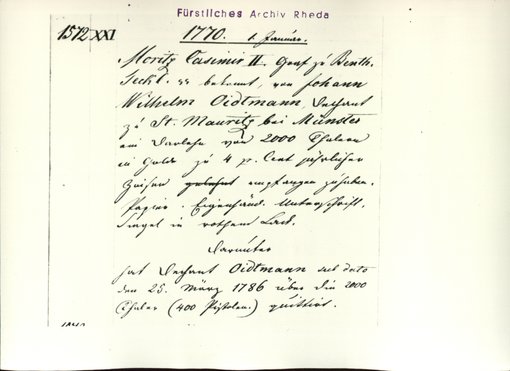 Fürstliches Archiv Rheda
1572 XXI
1770. 1. Januar.
Moritz Casimir II. Graf zu Benth.
Teckl. pp bekennt, von Johann
Wilhelm Oidtmann, Dechant
zu St. Mauritz bei Münster
ein Darlehn von 2000 Thalern
in Golde zu 4 pr. Cent jährlicher
Zinsen gelehnt empfangen zu haben.
Papier. Eigenhänd. Unterschrift.
Siegel in rothem Lack.
Darunter
hat Dechant Oidtmann sub dato
den 25. März 1786 über die 2000
Thaler (400 Pistolen.) quittirt.